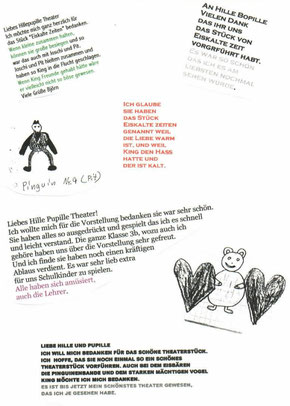 Liebes Hillepupille Theater
Ich möchte mich ganz herzlich für
das Stück "Eiskalte Zeiten" bedanken.
Wenn kleine zusammen halten,
können sie große besiegen und so
war das auch mit Joschi und Pit.
Joschi und Pit hielten zusammen und
haben so King in die Flucht geschlagen.
Wenn King Freunde gehabt hätte wäre
er vielleicht nicht so böse gewesen.
Viele Grüße Björn
AN HILLE BOPILLE
VIELEN DANK
DAS IHR UNS
DAS STÜCK VON
EISKALTE ZEIT
VORGRFÜHRT HABT.
ES WAR SO SCHÖN
DAS ICH ES AM
LIEBSTEN NOCHMAL
SEHEN WÜRDE.
ICH GLAUBE
SIE HABEN
DAS STÜCK
EISKALTE ZEITEN
GENANNT WEIL
DIE LIEBE WARM
IST, UND WEIL
KING DEN HASS
HATTE UND
DER IST KALT.
Pinguin
Liebes Hille Pupille Theater!
Ich wollte mich für die Vorstellung bedanken sie war sehr schön.
Sie haben alles so ausgedrückt und gespielt das ich es schnell
und leicht verstand. Die ganze Klasse 3b, wozu auch ich
gehöre haben uns über die Vorstellung sehr gefreut.
Und ich finde sie haben noch einen kräftigen
Ablaus verdient. Es war sehr lieb extra
für uns Schulkinder zu spielen.
Alle haben sich amüsiert,
auch die Lehrer.
LIEBE HILLE UND PUPILLE
ICH WILL MICH BEDANKEN FÜR DAS SCHÖNE THEATERSTÜCK.
ICH HOFFE, DAS SIE NOCH EINMAL SO EIN SCHÖNES
THEATERSTÜCK VORFÜHREN. AUCH BEI DEM EISBÄREN
DIE PINGUINENBANDE UND DEM STARKEN MÄCHTIGEN VOGEL
KING MÖCHTE ICH MICH BEDANKEN.
ES IST BIS JETZT MEIN SCHÖNSTES THEATER GEWESEN,
DAS ICH JE GESEHEN HABE.